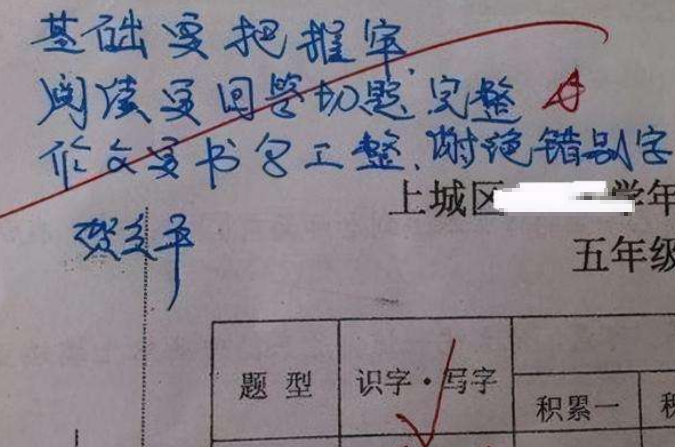 基础要把握牢
阅读要回答切题、完整
作文要书写工整、谢绝错别字
上城区 学年
五年级
题 型
识字·写字
积累一
积